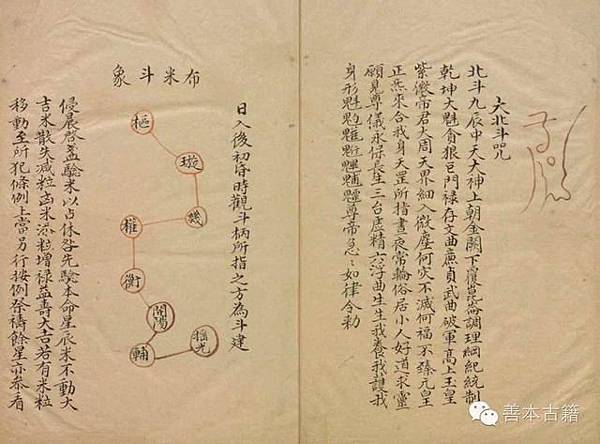 大北斗咒
北斗九辰中天大神上朝金闕下覆崑崙調理綱紀統制
乾坤大魁貪狼巨門祿存文曲廉貞武曲破軍高上玉皇
紫微帝君大周天界細入微塵何灾不滅何福不臻元皇
正炁來合我身天罡所指晝夜常輪俗居小人好道求靈
願見尊儀永保長生三台虛精六淳曲生生我養我護我
身形魁尊帝急〻如律令勅
日入後初昏時觀斗柄所指之方為斗建
布米斗象
樞
璇
幾
權
衡
開陽
搖光
輔
侵晨啓盖驗米以占休咎先驗本命星辰米不動大
吉米散失減粒凶米添粒增禄益壽大吉若有米粒
移動至所犯條例上當另行按例祭禱餘星亦叅看
善本古籍